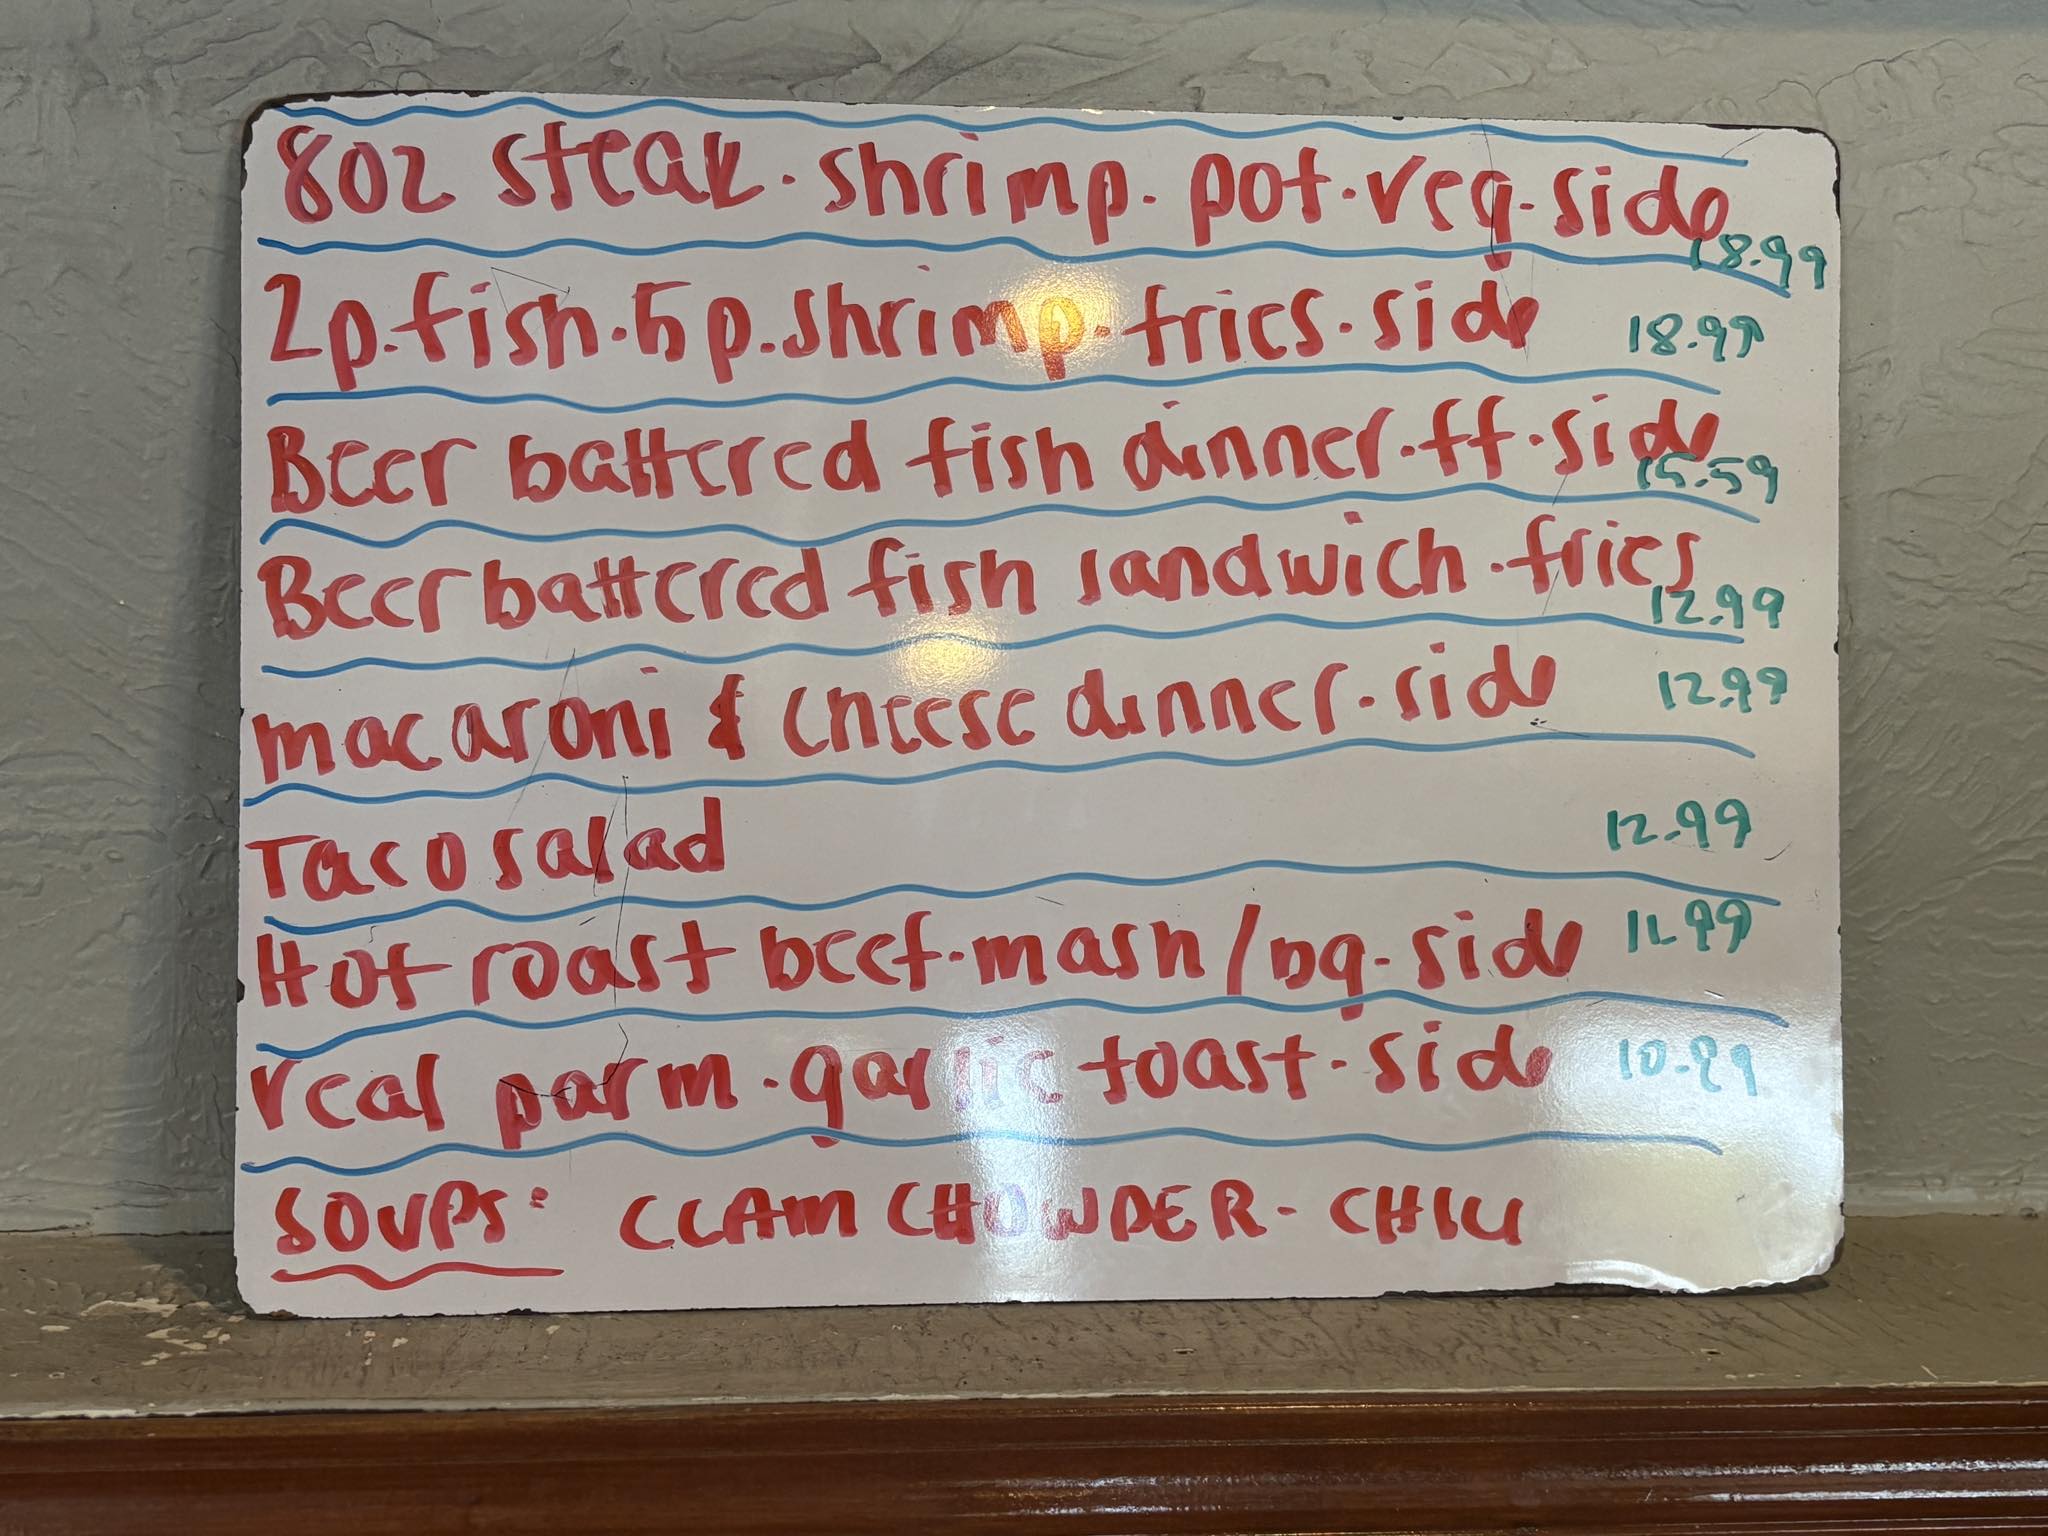 8oz steak. shrimp. pot. veg. side 18.99
2p. fish. 5p. shrimp. fries. side 18.99
Beer battered fish dinner. ff. side 15.59
Beer battered fish sandwich. fries 12.99
macaroni & cheese dinner. side 12.99
Taco salad 12.99
Hot roast beef. mash/bg. side 11.99
veal parm. garlic toast. side 10.99
SOUPS: CLAM CHOWDER - CHILI